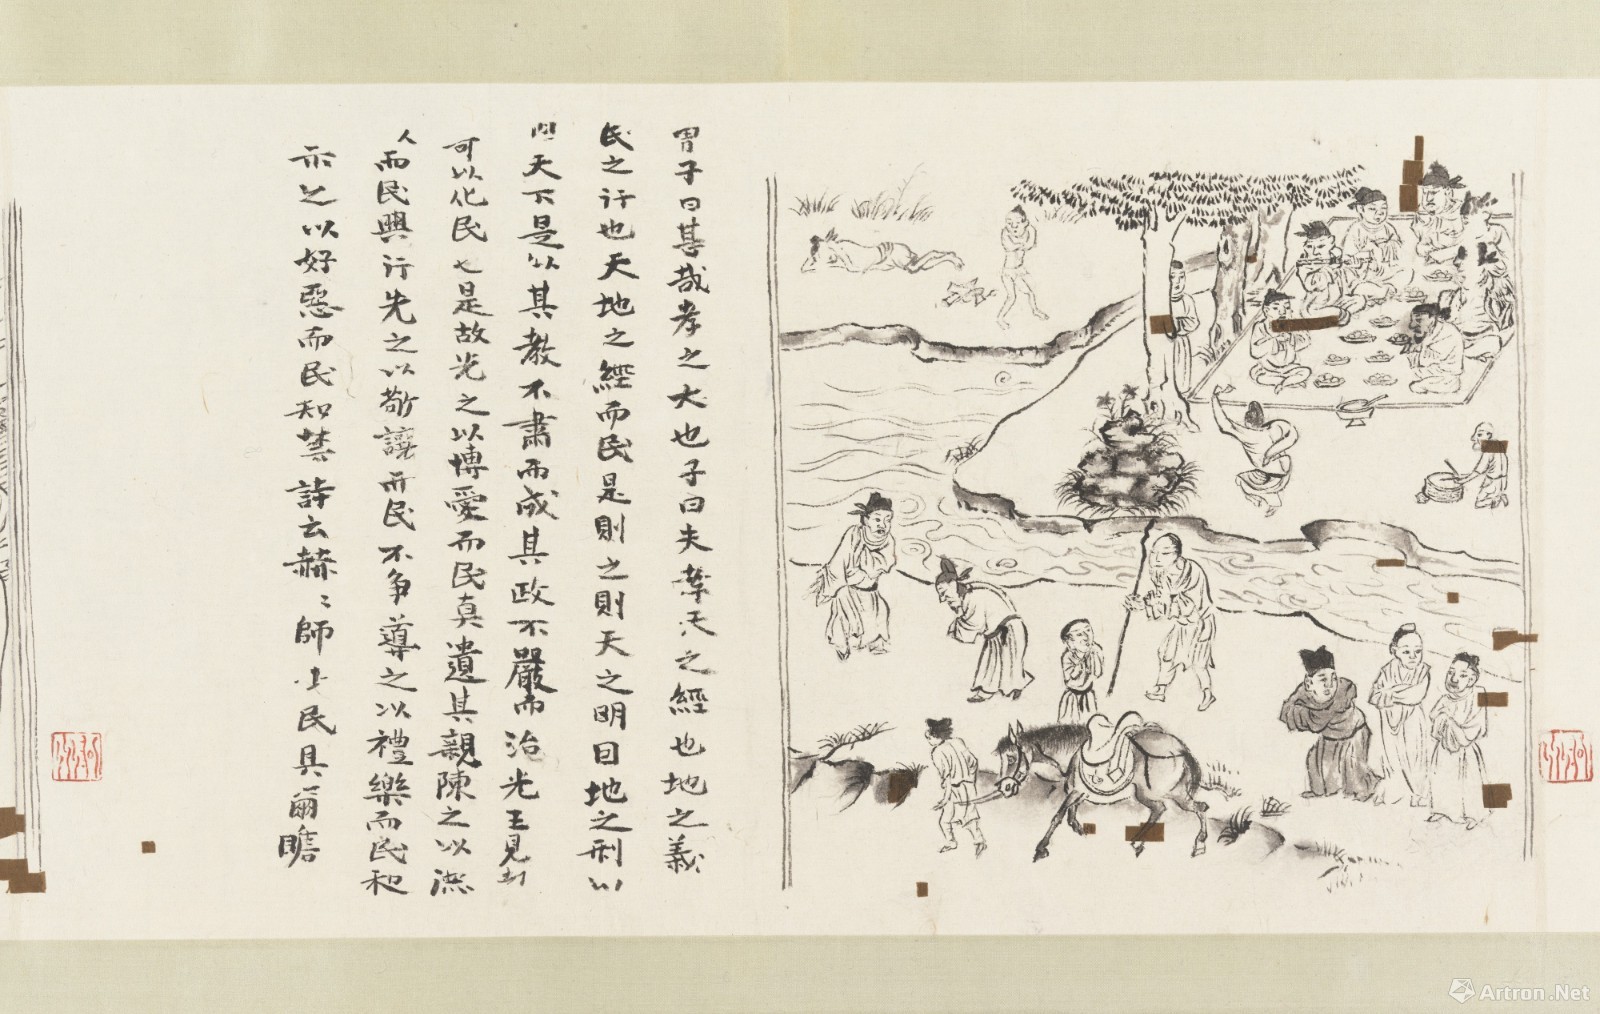 曾子曰甚哉孝之大也子曰夫孝天之經也地之義
民之行也天地之經而民是則之則天之明因地之利以
順天下是以其教不肅而成其政不嚴而治先王見教
可以化民也是故先之以博愛而民莫遺其親陳之以德
而民興行先之以敬讓而民不爭導之以禮樂而民和
示之以好惡而民知禁詩云赫〻師尹民具爾瞻
Artron.Net